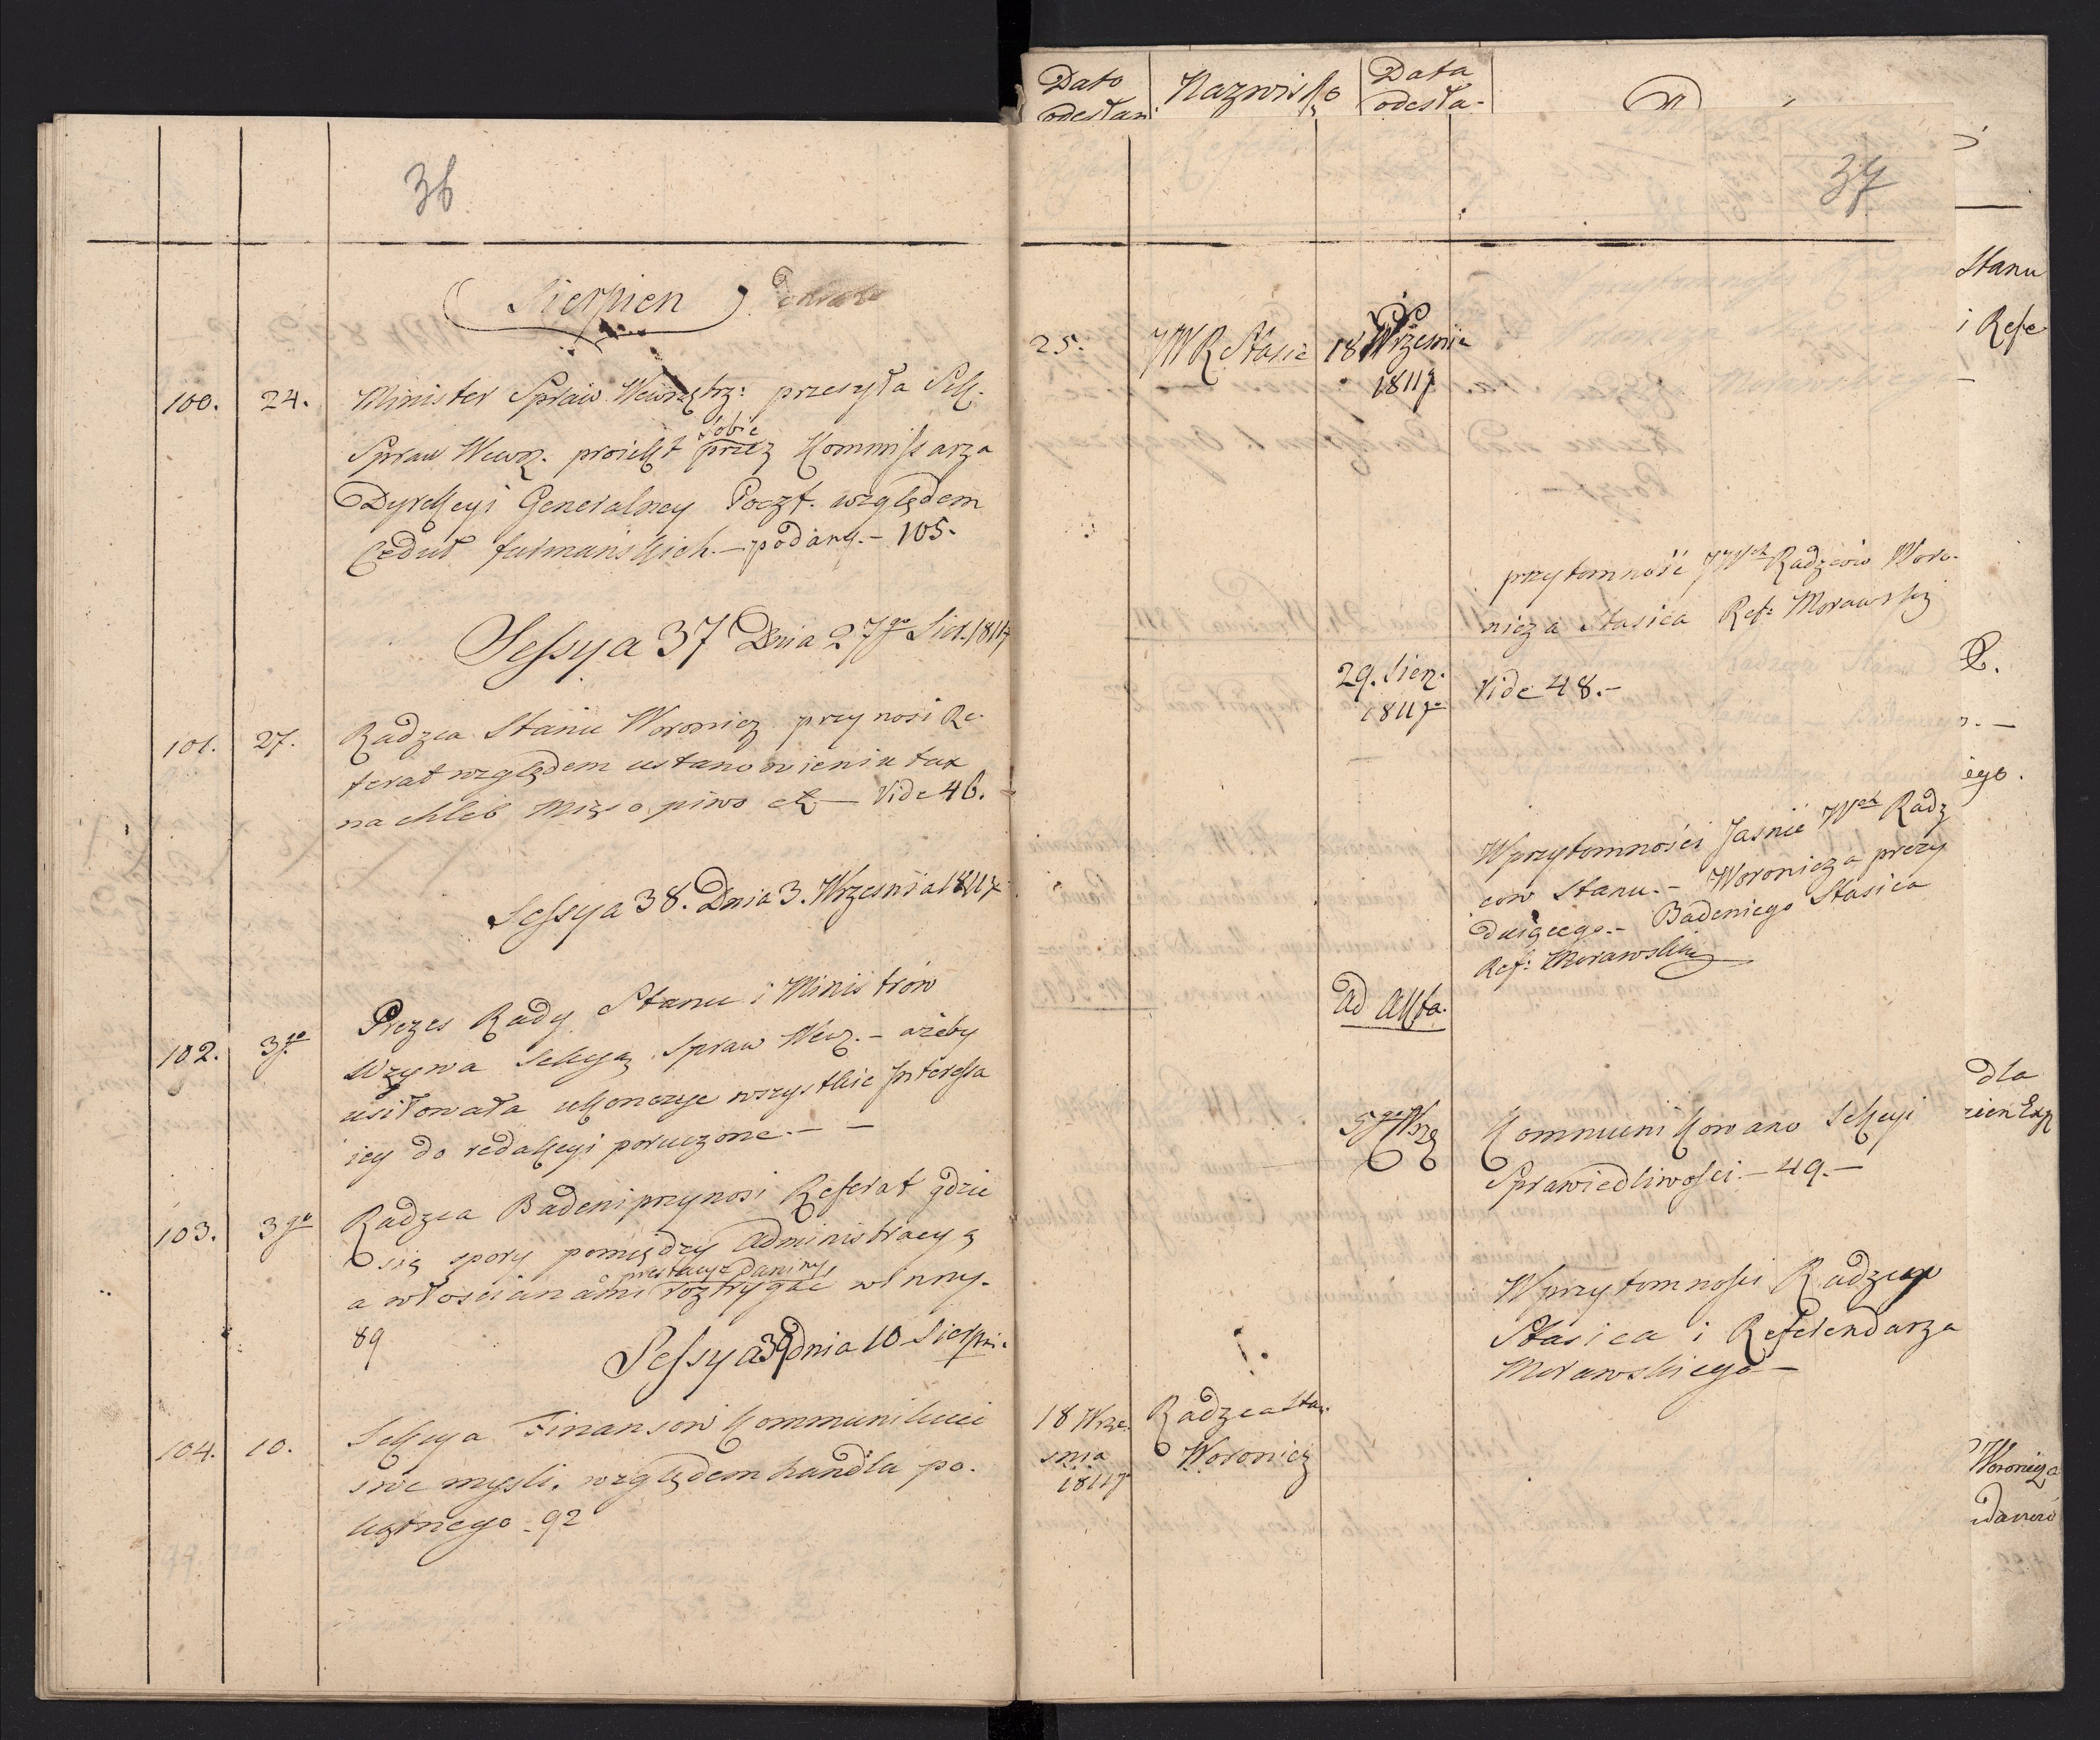 36
Sierpien
100. 24. Minister Spraw Wewnętrz: przesyła Sek.
Spraw Wewn. proiekt sobie przez Kommissarza
Dyrekcyi Generalney Poczt. względem
Ceduł furmanskich. — podany. — 105.
Sessya 37 Dnia 27go Sier. 1811
101. 27. Radzca Stanu Woronicz przynosi Re-
ferat względem ustanowienia tax
na chleb Mięso piwo etc — Vide 46.
Sessya 38. Dnia 3. Wrzesnia 1811
102. 3go Prezes Rady Stanu i Ministrów
Wzywa Sekcyą Spraw Wew. — ażeby
usiłowała ukonczyc wszystkie Interessa
iey do redakcyi poruczone. — —
103. 3go Radzca Badeni przynosi Referat gdzie
się spory pomiędzy Administracyą
a włoscianami prestacye daniny roztrygać winny.
89
Sessya 39 dnia 10 Sierpni
104. 10. Sekcya Finansow Kommunikuie
swe mysli. względem handlu po-
kątnego. 92
Dato odesłan
Nazwisko
Data odesła-
37
25. JW R. Stasic 18 Wrzesnia
1811
przytomność JWch Radzców Woro-
nicza Stasica Ref: Morawski
29. Sierp.
1811
Vide 48. —
W przytomności Jasnie Wch Radz
cow Stanu. — Woronicza prezy
duiącego. — Badeniego Stasica
Ref: Morawskie
Ad Akta.
5go Wrz
Kommunikowano Sekcyi
Sprawiedliwości. — 49. —
W przytomności Radzcy
Stasica i Referendarza
Morawskiego —
18 Wrze-
snia
1811
Radzca Sta:
Woronicz
Stanu
i Refe
R.
ego.
dla
zien Exp
Woronicza